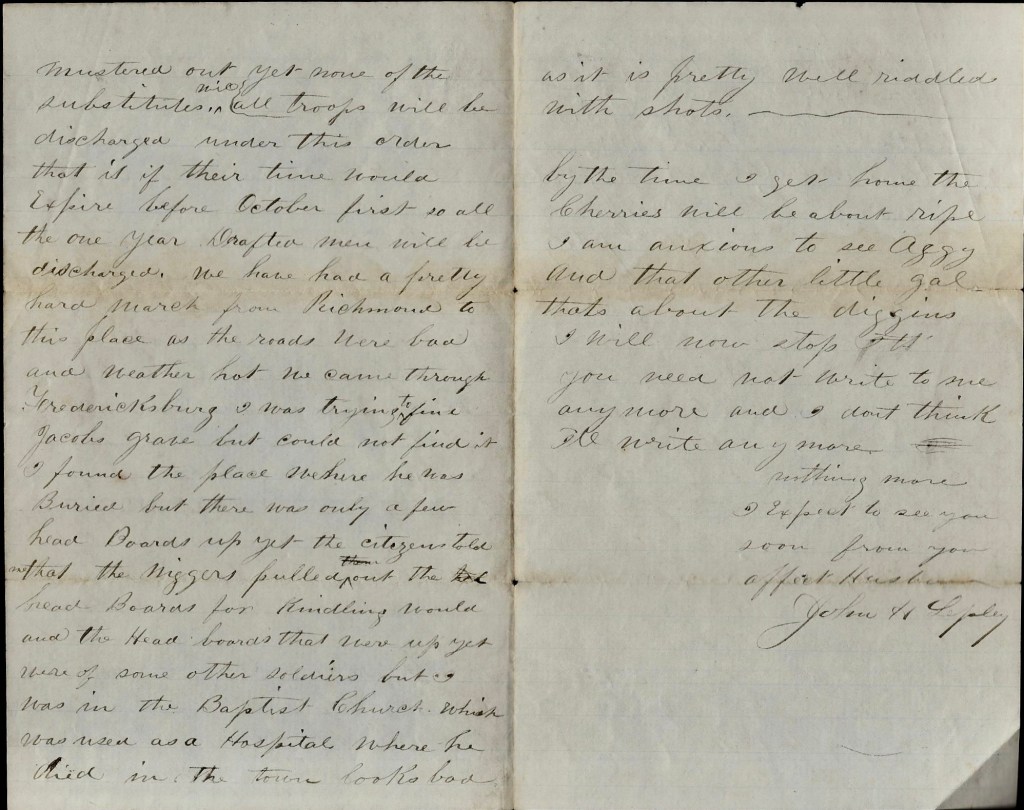 mustered out yet none of the
substitutes. all troops will be
discharged under this order
that is if their time would
Expire before October first so all
the one year Drafted men will be
discharged. we have had a pretty
hard march from Richmond to
this place as the roads were bad
and weather hot we came through
Fredericksburg I was trying to fine
Jacobs grave but could not find it
I found the place wehire he was
Buried but there was only a few
head Boards up yet the citizens told
me that the Niggers pulled them out the
head Boards for Kindling would
and the Head boards that were up yet
were of some other soldiers but I
was in the Baptist Church. which
was used as a Hospital where he
died in the town looks bad
as it is pretty well riddled
with shots.
by the time I get home the
Cherries will be about ripe
I am anxious to see Aggy
And that other little gal
thats about the diggins
I will now stop
you need not write to me
any more and I dont think
Ill write any more
nothing more
I Expect to see you
soon from you
affect Husban
John H Lepley